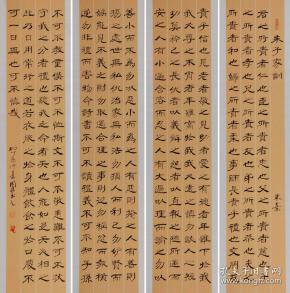 朱子家訓 朱熹
君之所貴者仁也臣之所貴者忠也父之所貴者慈也子之
所貴者孝也兄之所貴者友也弟之所貴者恭也夫之
所貴者和也婦之所貴者柔也事師長貴乎禮也交朋友
貴乎信也見老者敬之見幼者愛之有德者年雖下於我
我必尊之不肖者年雖高於我我必遠之慎勿談人之短
切莫矜己之長仇者以義解之怨者以直報之隨所遇而
安之人有小過含容而忍之人有大過以理而諭之勿以
善小而不為勿以惡小而為之人有惡則掩之人有善則
揚之處世無私仇治家無私法勿損人而利己勿妒賢而
詩書不可不讀禮義不可不知子孫
不可不教童僕不可不恤斯文不可不敬患難不可不扶
守我之分者禮也聽我之命者天也人能如是天必相之
此乃日用常行之道若衣服之於身體飲食之於口腹不
可一日無也可不慎哉